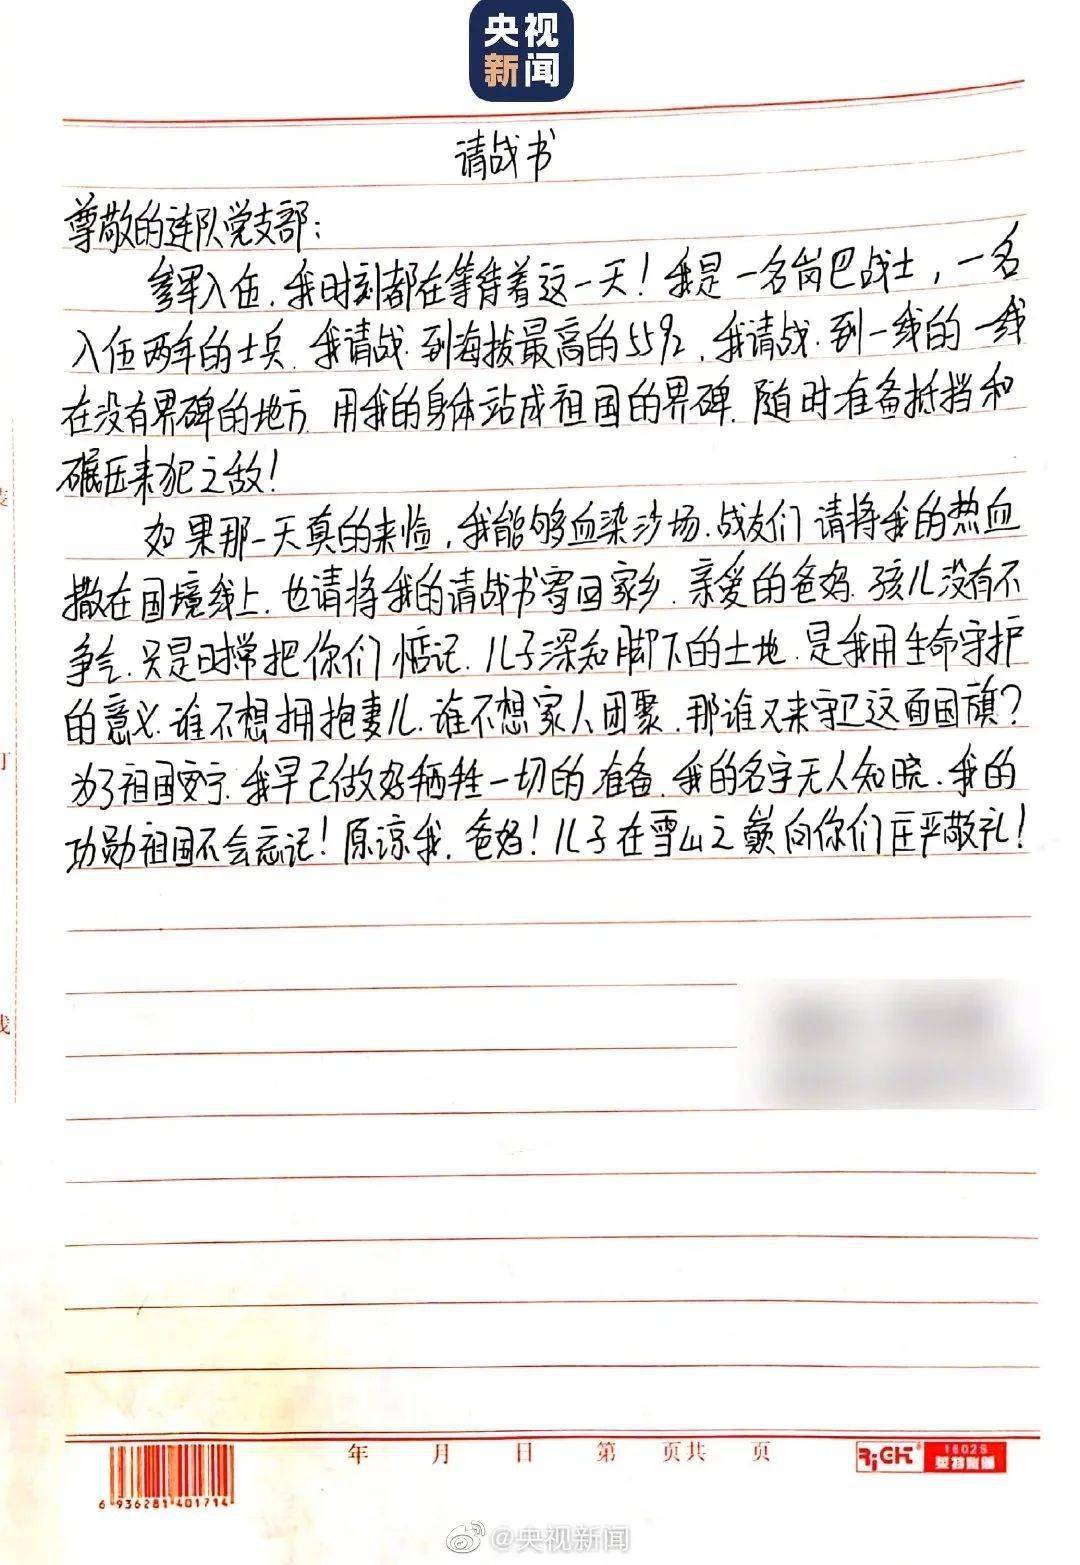 央视
新闻
请战书
尊敬的连队党支部：
参军入伍，我时刻都在等待着这一天！我是一名岗巴战士，一名
入伍两年的士兵．我请战．到海拔最高的5592，我请战．到一线的一线
在没有界碑的地方．用我的身体站成祖国的界碑．随时准备抵挡和
碾压来犯之敌！
如果那一天真的来临，我能够血染沙场．战友们 请将我的热血
撒在国境线上．也请将我的请战书寄回家乡．亲爱的爸妈．孩儿没有不
争气．只是时常把你们惦记．儿子深知脚下的土地．是我用生命守护
的意义．谁不想拥抱妻儿．谁不想家人团聚．那谁又来守卫这面国旗？
为了祖国安宁．我早已做好牺牲一切的准备．我的名字无人知晓．我的
功勋祖国不会忘记！原谅我．爸妈！儿子在雪山之巅向你们庄严敬礼！
订
线
年 月 日 第 页共 页
1602S
6 936281 401714
@央视新闻